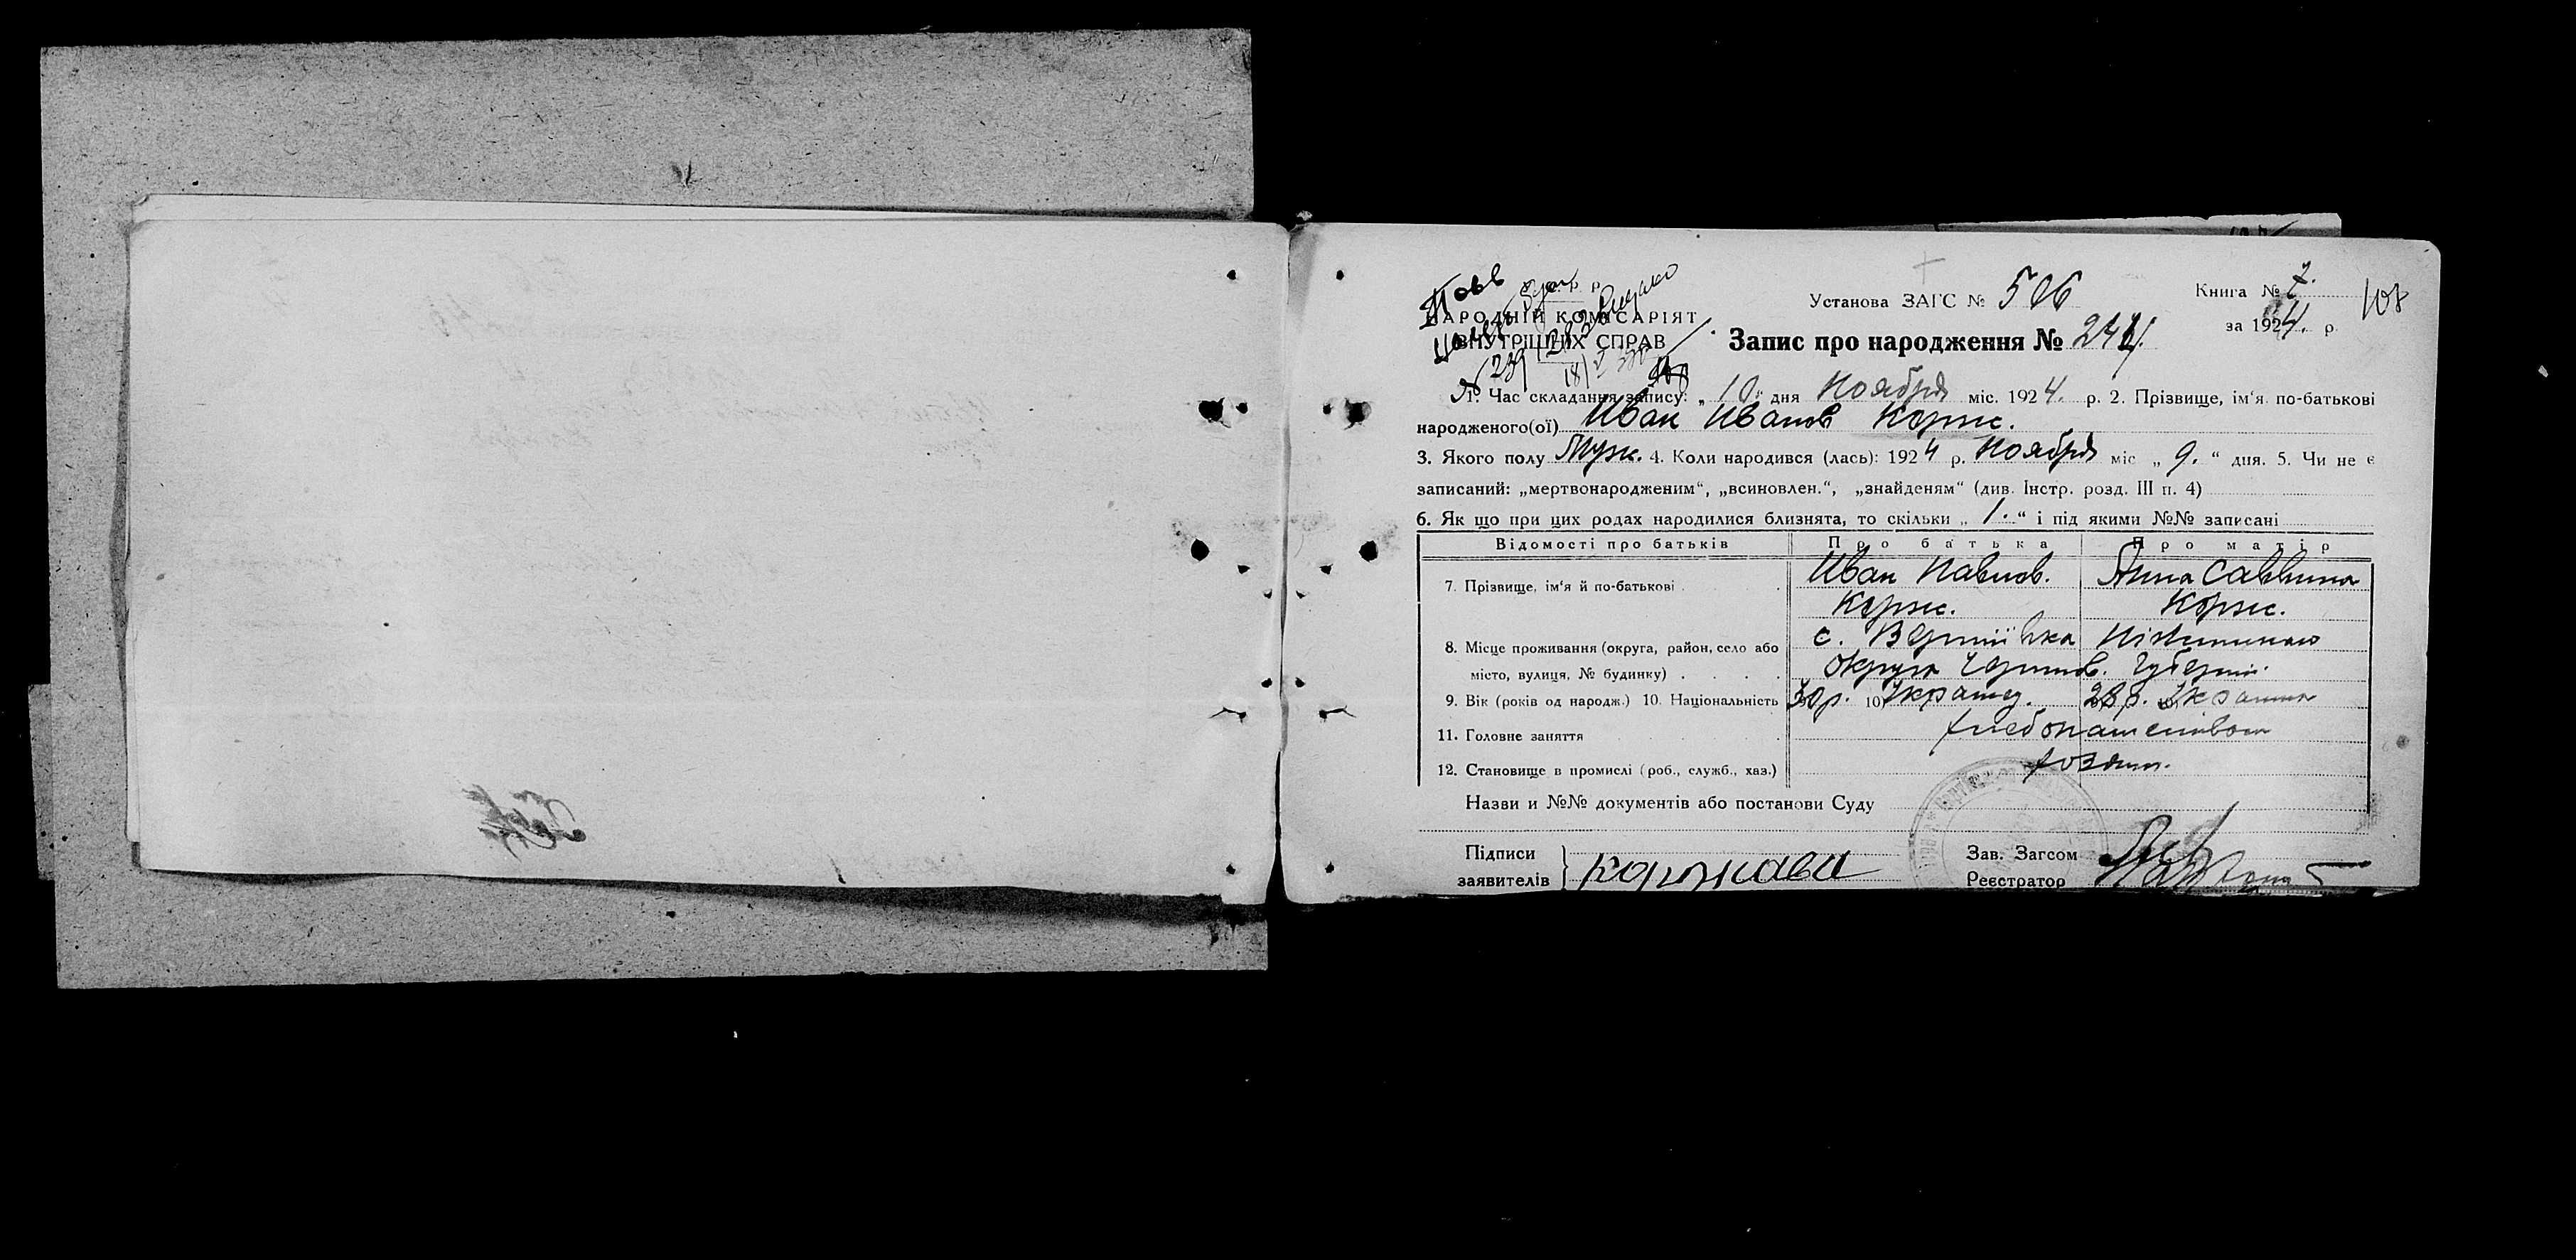 Установа ЗАГС № 506
Книга № 2.
108
НАРОДНІЙ КОМІСАРІЯТ
за 1924. р.
ВНУТРІШНІХ СПРАВ
Запис про народження № 244.
1. Час складання запису: „10“ дня Ноября міс. 1924. р. 2. Прізвище, ім'я по-батькові
народженого(ої) Иван Иванов Корж.
3. Якого полу Муж. 4. Коли народився (лась): 1924 р. Ноября міс „9.“ дня. 5. Чи не є
записаний: „мертвонародженим“, „всиновлен.“, „знайденям“ (див. Інстр. розд. III п. 4)
6. Як що при цих родах народилися близнята, то скільки „1.“ і під якими №№ записані
Відомості про батьків Про батька Про матір
7. Прізвище, ім'я й по-батькові . Иван Павлов. Анна Саввина
Корж. Корж.
8. Місце проживання (округа, район, село або с. Вертіївка Ніжинського
місто, вулиця, № будинку) . . . . округа Черниг. Губерні.
9. Вік (років од народж.) 10. Національність 30 р. 10 Украинец. 28 р. Украинка
11. Головне заняття хлебопашество
12. Становище в промислі (роб., служб., хаз.) хозяин.
Назви и №№ документів або постанови Суду
Підписи
заявителів
Зав. Загсом
Реєстратор